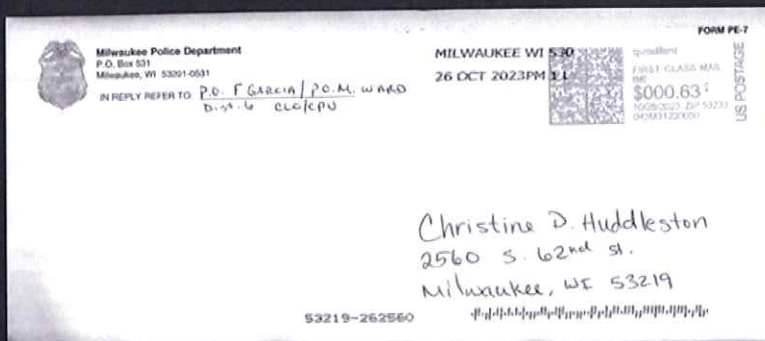 FORM PE-7
Milwaukee Police Department
P.O. Box 531
Milwaukee, WI 53201-0531
IN REPLY REFER TO P.O. F GARCIA / P.O. M. WARD
Dist. 6 CLO/CPU
MILWAUKEE WI 530
26 OCT 2023PM 1 L
quadient
FIRST-CLASS MAIL
IMI
$000.63
10/26/2023 ZIP 53233
US POSTAGE
Christine D. Huddleston
2560 S. 62nd St.
Milwaukee, WI 53219
53219-262560